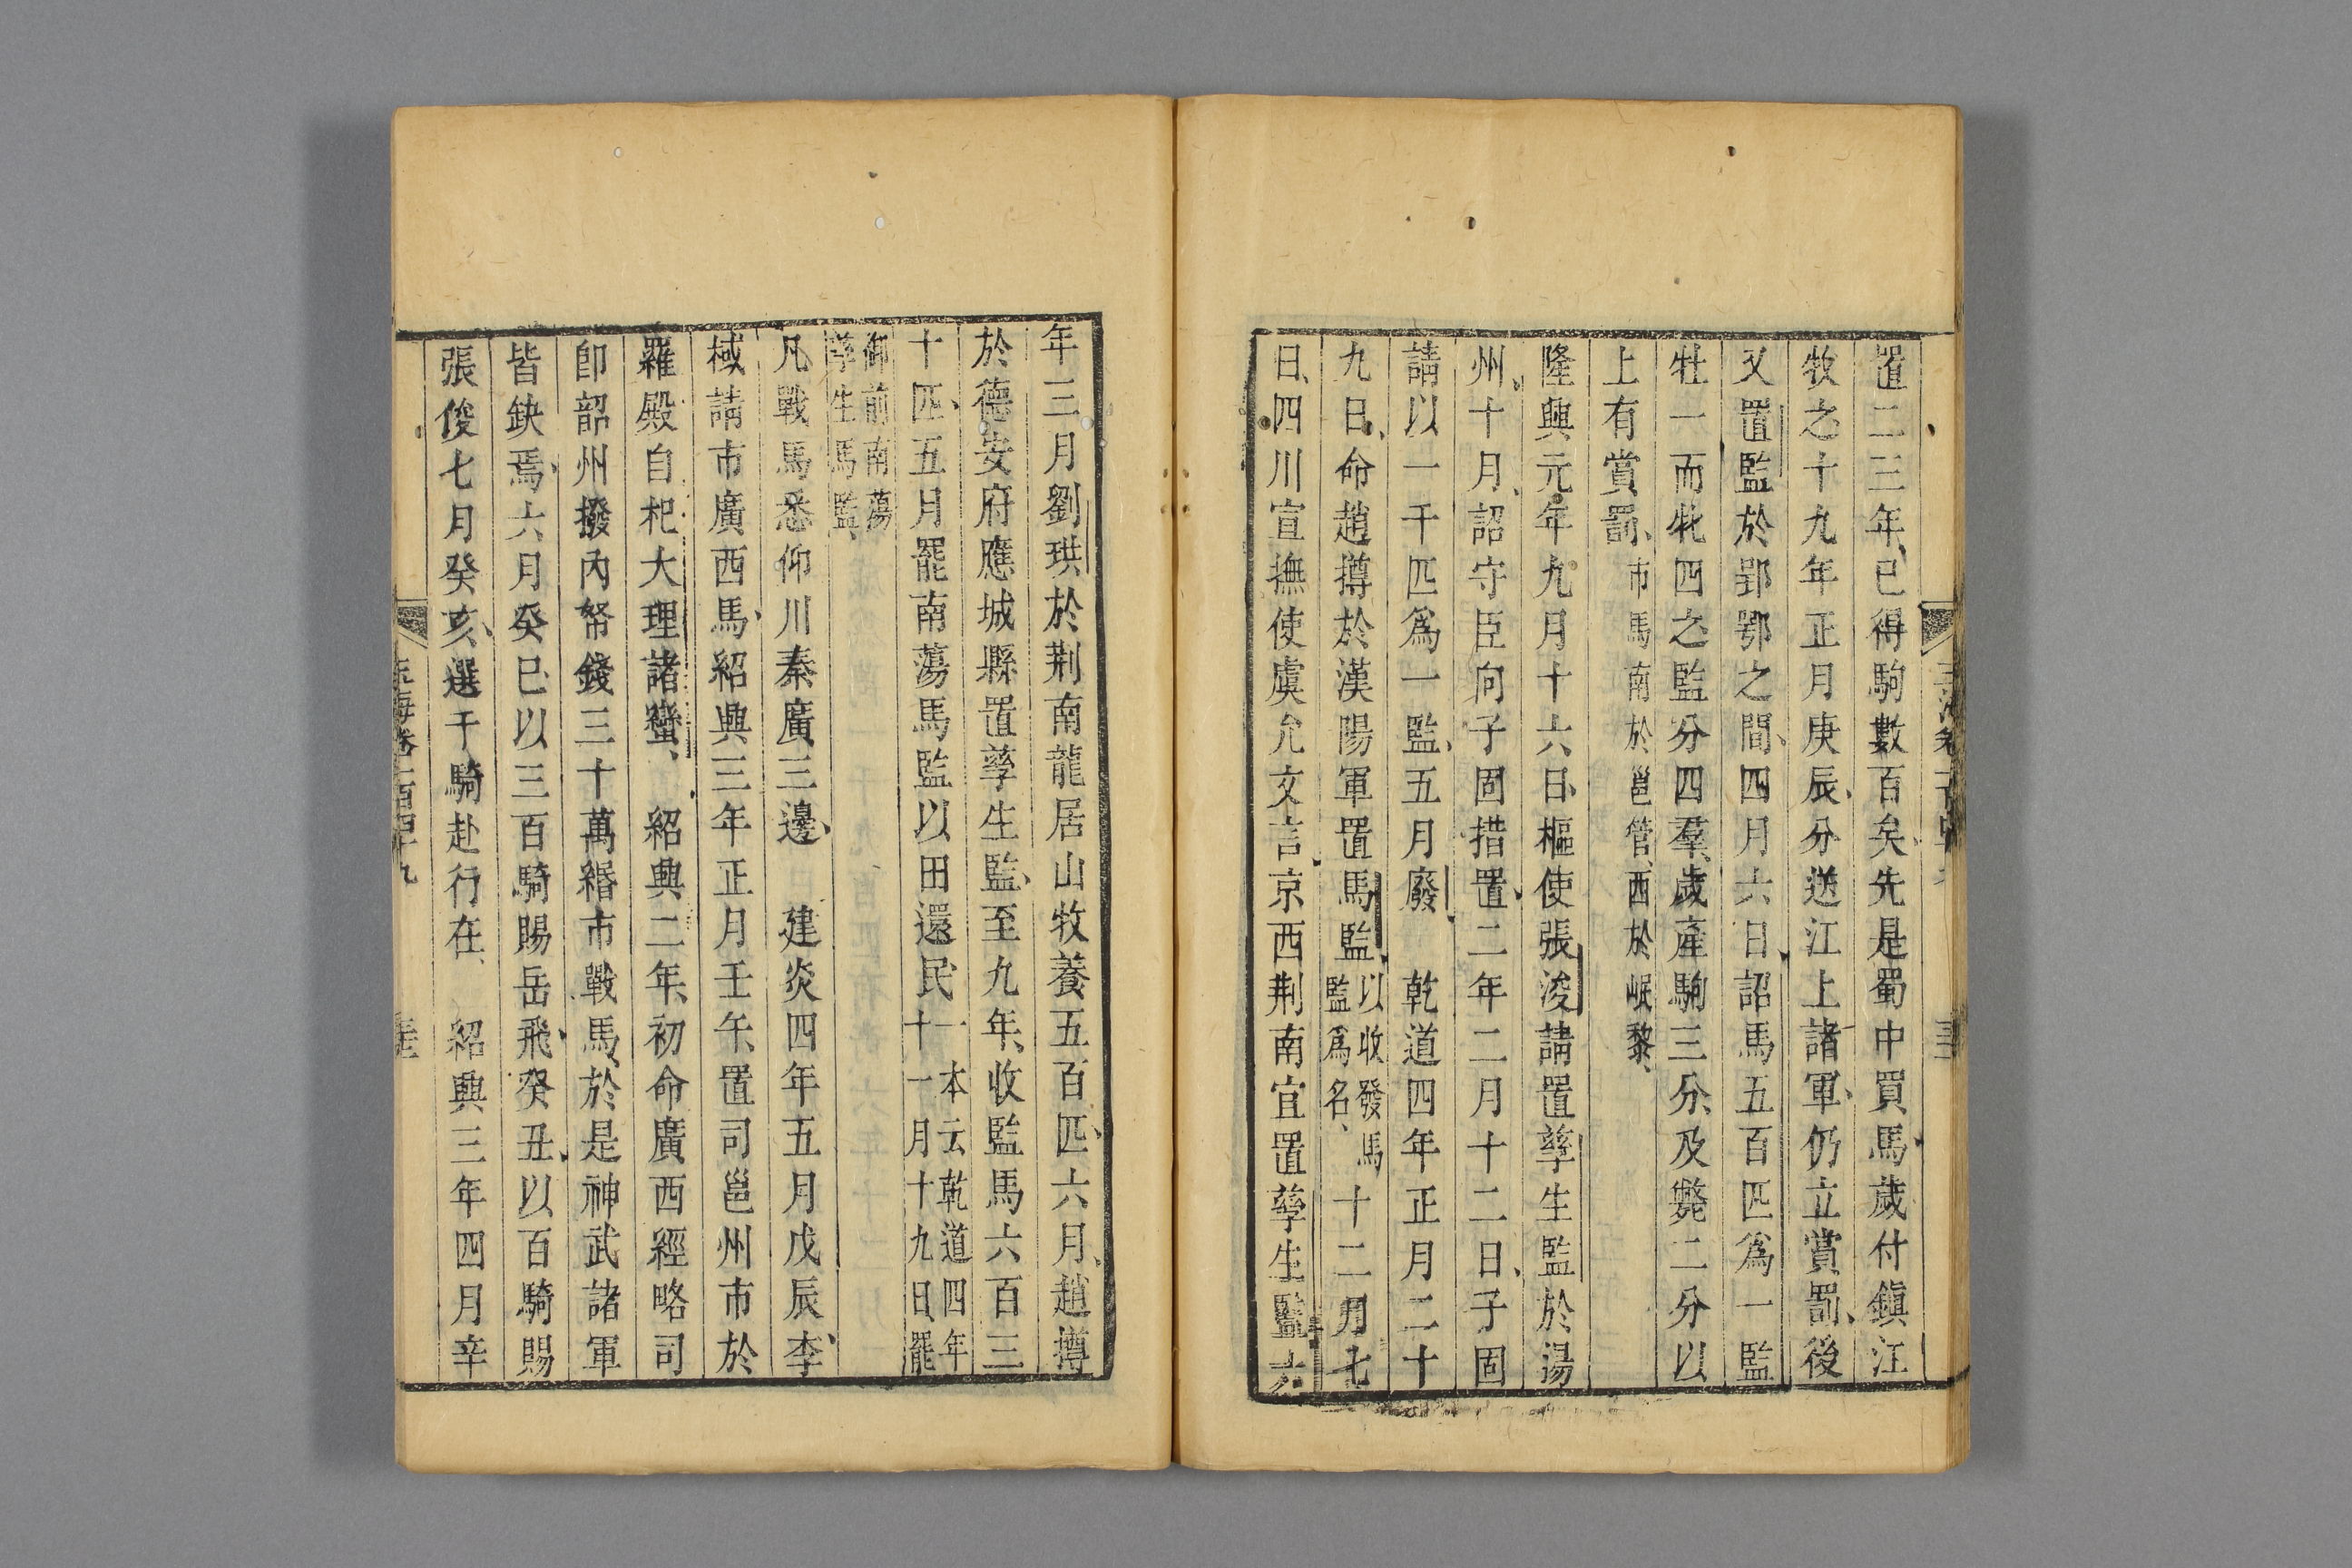 置二三年已得駒數百矣先是蜀中買馬歲付鎭江
牧之十九年正月庚辰分送江上諸軍仍立賞罰後
又置監於郢鄂之間四月六日詔馬五百匹爲一監
牡一而牝四之監分四羣歲產駒三分及斃二分以
上有賞罰市馬南於邕管西於岷黎
隆興元年九月十六日樞使張浚請置孳生監於湯
州十月詔守臣向子固措置二年二月十二日子固
請以一千匹爲一監五月廢 乾道四年正月二十
九日命趙撙於漢陽軍置馬監以收發馬監爲名十二月七
日四川宣撫使虞允文言京西荆南宜置孳生監六
年三月劉珙於荆南龍居山牧養五百匹六月趙撙
於德安府應城縣置孳生監至九年收監馬六百三
十匹五月罷南蕩馬監以田還民一本云乾道四年十一月十九日罷
御前南蕩孳生馬監
凡戰馬悉仰川秦廣三邊 建炎四年五月戊辰李
棫請市廣西馬紹興三年正月壬午置司邕州市於
羅殿自杞大理諸蠻 紹興二年初命廣西經略司
卽韶州撥內帑錢三十萬緡市戰馬於是神武諸軍
皆缺焉六月癸巳以三百騎賜岳飛癸丑以百騎賜
張俊七月癸亥選千騎赴行在 紹興三年四月辛
玉海卷一百四十九